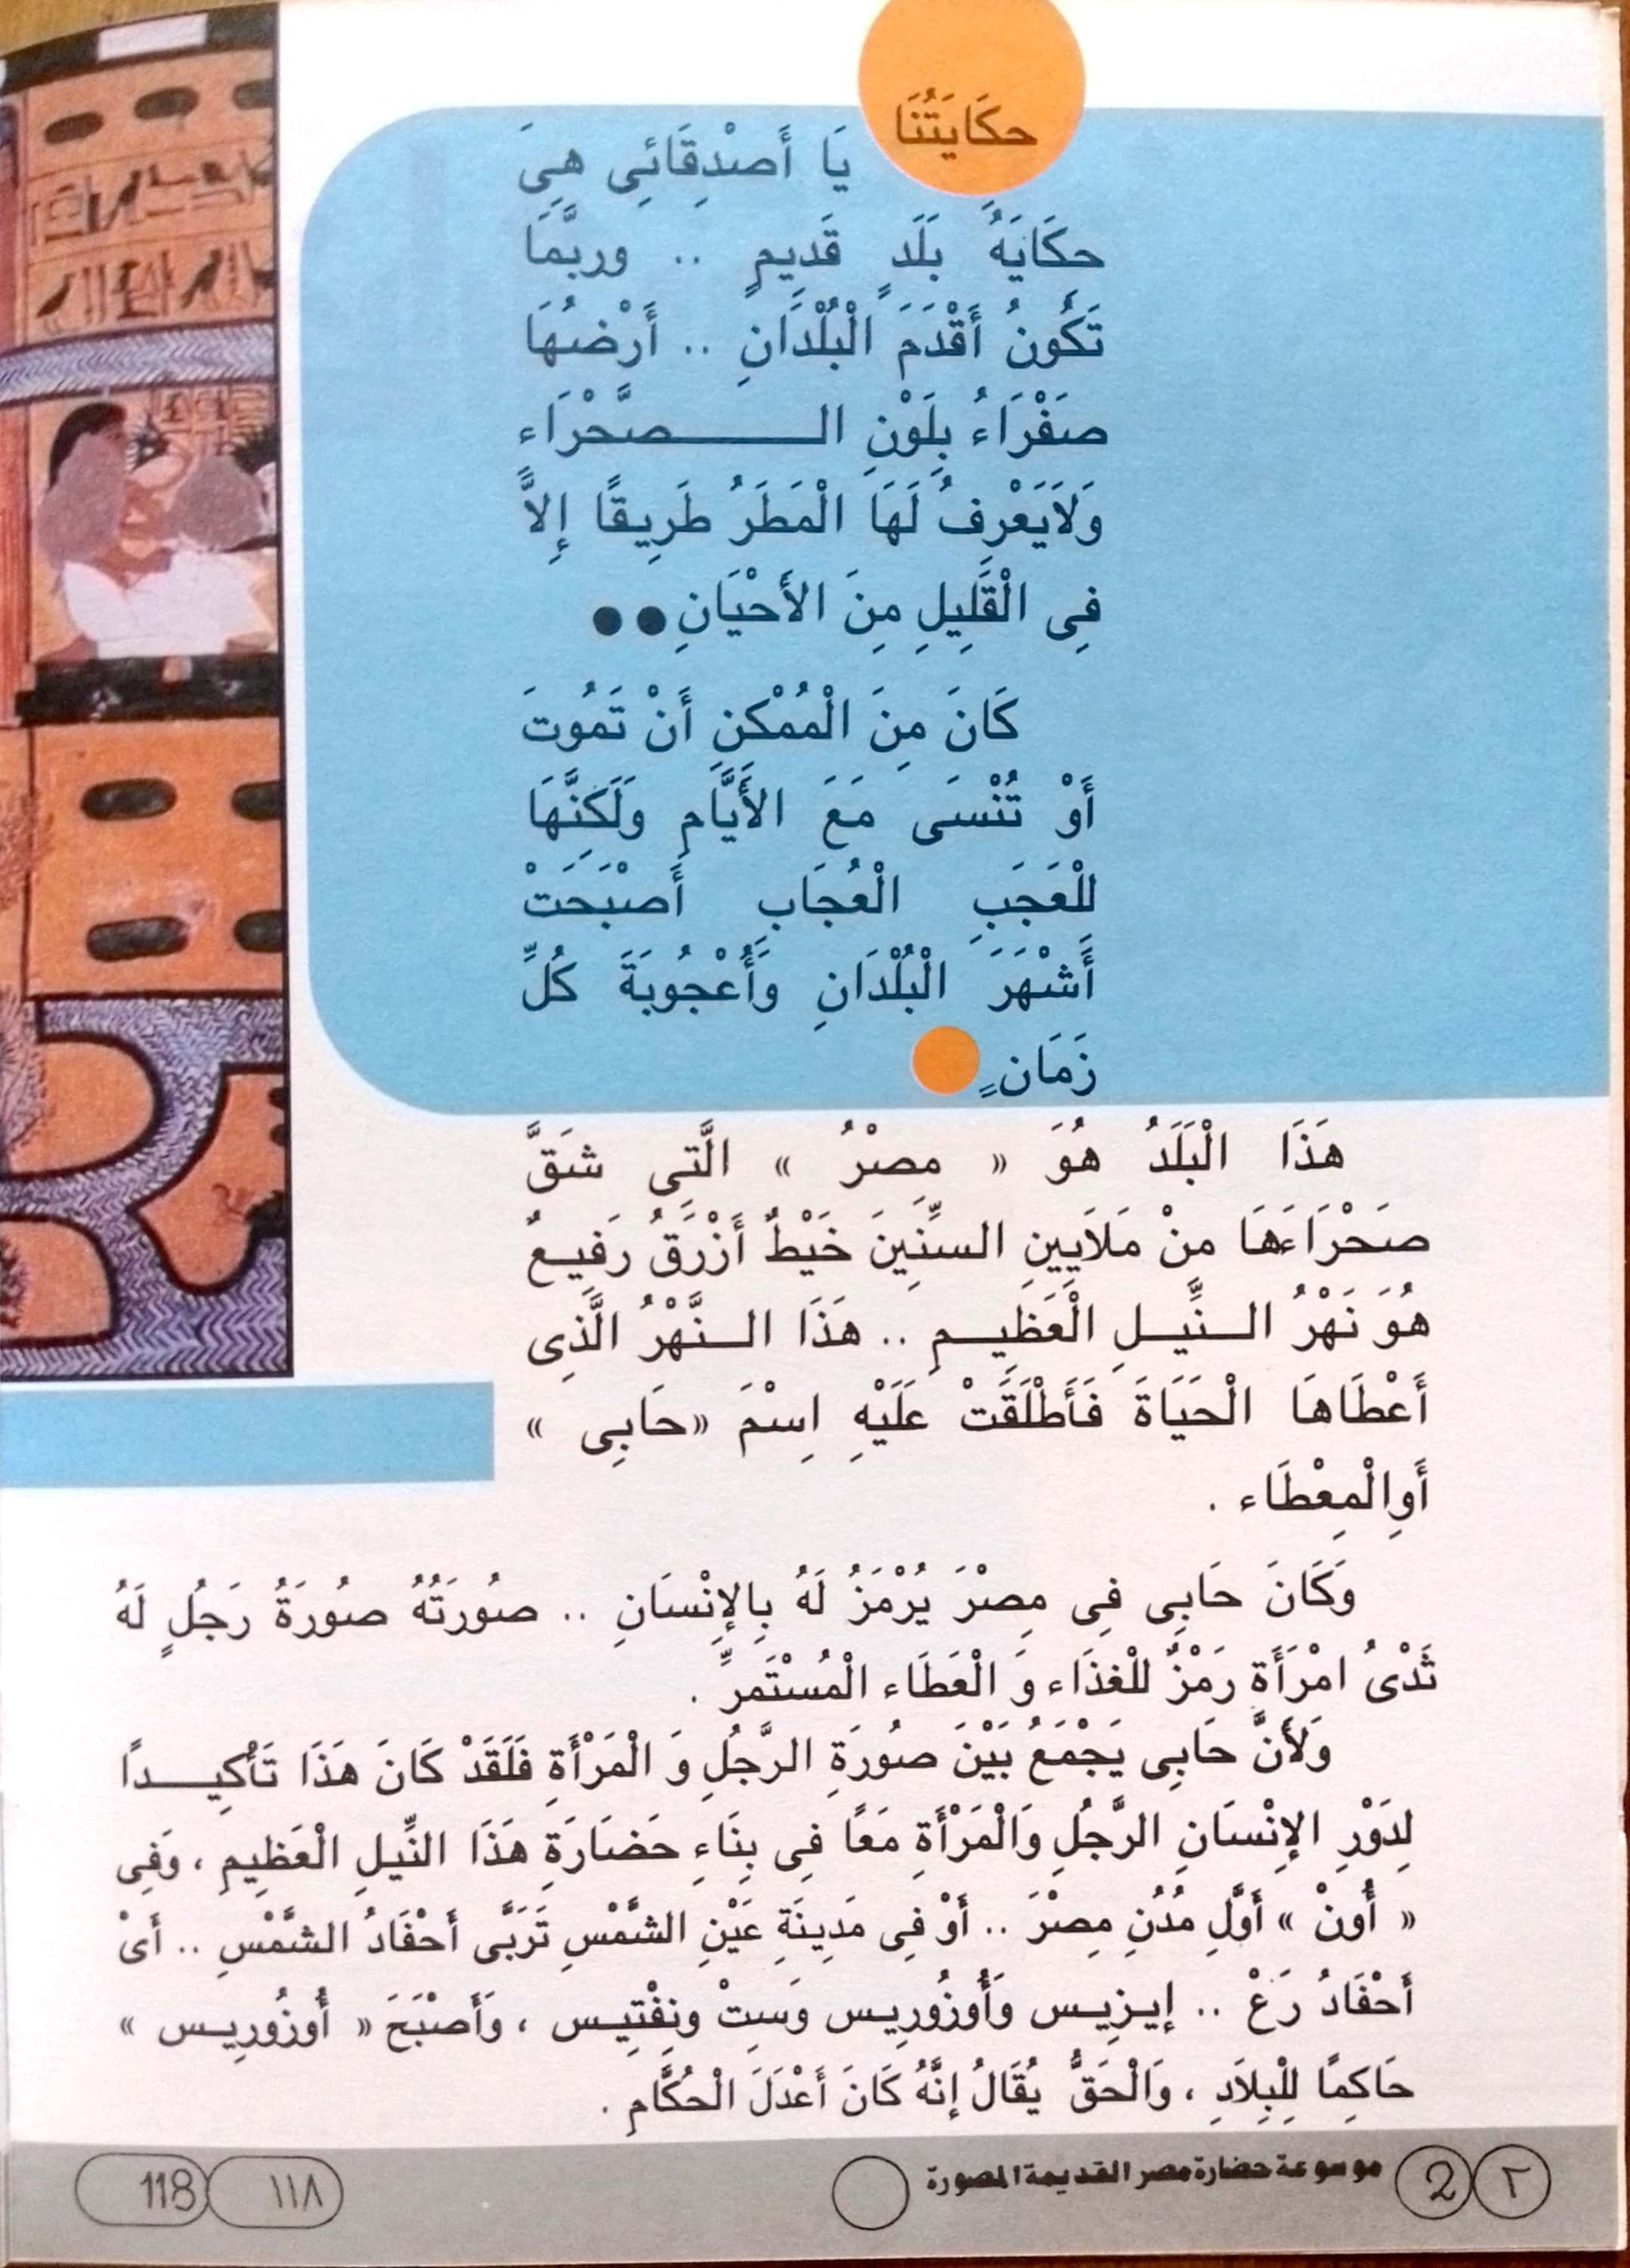 حكَايَتُنَا
يَا أَصْدِقَائِى هِىَ
حِكَايَةُ بَلَدٍ قَدِيمٍ .. وربَّمَا
تَكُونُ أَقْدَمَ الْبُلْدَانِ .. أَرْضُهَا
صَفْرَاءُ بِلَوْنِ الصَّحْرَاء
وَلَايَعْرِفُ لَهَا الْمَطَرُ طَرِيقًا إِلاَّ
فِى الْقَلِيلِ مِنَ الأَحْيَانِ ●●
كَانَ مِنَ الْمُمْكنِ أَنْ تَمُوتَ
أَوْ تُنْسَى مَعَ الأَيَّامِ وَلَكِنَّهَا
للْعَجَبِ الْعُجَابِ أَصْبَحَتْ
أَشْهَرَ الْبُلْدَانِ وَأُعْجُوبَةَ كُلِّ
زَمَانٍ
هَذَا الْبَلَدُ هُوَ « مِصْرُ » الَّتِى شَقَّ
صَحْرَاءَهَا منْ مَلَايِينِ السِّنِينَ خَيْطٌ أَزْرَقُ رَفِيعٌ
هُوَ نَهْرُ النِّيلِ الْعَظِيمِ .. هَذَا النَّهْرُ الَّذِى
أَعْطَاهَا الْحَيَاةَ فَأَطْلَقَتْ عَلَيْهِ اِسْمَ «حَابِى »
أَوِالْمِعْطَاء .
وَكَانَ حَابِى فِى مِصْرَ يُرْمَزُ لَهُ بِالإِنْسَانِ .. صُورَتُهُ صُورَةُ رَجُلٍ لَهُ
ثَدْىُ امْرَأَة رَمْزٌ للْغذَاء وَ الْعَطَاء الْمُسْتَمرِّ .
وَلأَنَّ حَابِى يَجْمَعُ بَيْنَ صُورَةِ الرَّجُلِ وَ الْمَرْأَةِ فَلَقَدْ كَانَ هَذَا تَأْكِيداً
لِدَوْرِ الإِنْسَانِ الرَّجُلِ وَالْمَرْأَةِ مَعًا فِى بِنَاءِ حَضَارَةِ هَذَا النِّيلِ الْعَظِيمِ ، وَفِى
« أُونْ » أَوَّلِ مُدُنِ مِصْرَ .. أَوْ فِى مَدِينَةِ عَيْنِ الشَّمْسِ تَرَبَّى أَحْفَادُ الشَّمْسِ .. أَىْ
أَحْفَادُ رَعْ .. إِيزِيس وَأُوزُورِيس وَسِتْ ونِفْتِيس ، وَأَصْبَحَ « أُوزُورِيس »
حَاكِمًا لِلْبِلاَدِ ، وَالْحَقُّ يُقَالُ إِنَّهُ كَانَ أَعْدَلَ الْحُكَّامِ .
٢ 2 موسوعة حضارة مصر القديمة المصورة ١١٨ 118